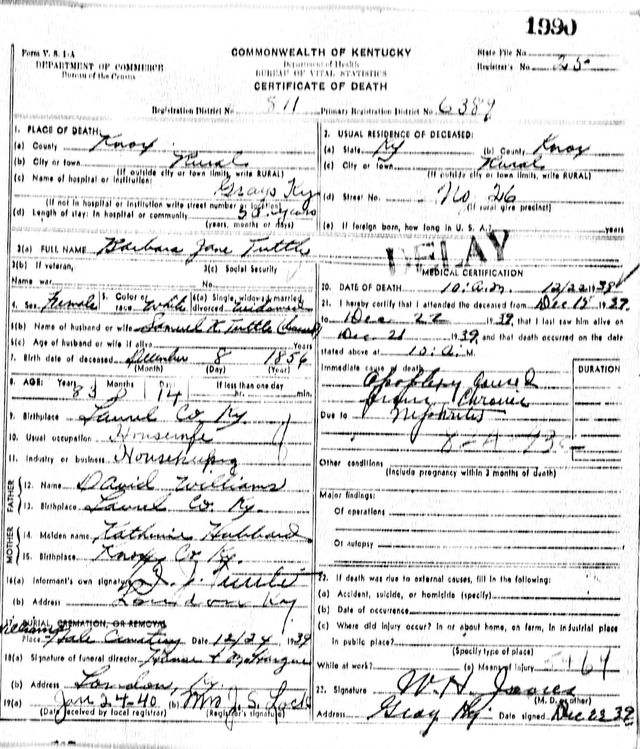 1990
Form V. S. 1-A
DEPARTMENT OF COMMERCE
Bureau of the Census
COMMONWEALTH OF KENTUCKY
Department of Health
BUREAU OF VITAL STATISTICS
CERTIFICATE OF DEATH
State File No.
Registrar's No. 25
Registration District No. 811 Primary Registration District No. 6389
1. PLACE OF DEATH:
(a) County Knox
(b) City or town Rural
(If outside city or town limits, write RURAL)
(c) Name of hospital or institution:
Grays Ky
(If not in hospital or institution write street number or location)
(d) Length of stay: In hospital or community years
(years, months or days)
2. USUAL RESIDENCE OF DECEASED:
(a) State Ky (b) County Knox
(c) City or town Rural
(If outside city or town limits, write RURAL)
(d) Street No. No. 26
(If rural give precinct)
(e) If foreign born, how long in U. S. A.? years
3(a) FULL NAME Barbara Jane Tuttle
3(b) If veteran,
Name war
3(c) Social Security
No.
DELAY
4. Sex Female 5. Color or race White 6(a) Single, widowed, married, divorced Widowed
6(b) Name of husband or wife Samuel K. Tuttle
6(c) Age of husband or wife if alive Years
7. Birth date of deceased December 8 1856
(Month) (Day) (Year)
8. AGE: Years Months Days If less than one day
83 0 14 hr. min.
9. Birthplace Laurel Co Ky
10. Usual occupation Housewife
11. Industry or business Housekeeping
FATHER
12. Name David Williams
13. Birthplace Laurel Co. Ky.
MOTHER
14. Maiden name Katherine Hubbard
15. Birthplace Knox Co Ky.
16(a) Informant's own signature J. Tuttle
(b) Address London Ky
17. BURIAL, CREMATION, OR REMOVAL
Williams
Place Dale Cemetery Date 12/24 1939
18(a) Signature of funeral director
(b) Address London, Ky.
19(a) Jan 24-40 (b) Mrs J. S. Lock
(Date received by local registrar) (Registrar's signature)
MEDICAL CERTIFICATION
20. DATE OF DEATH 10. a.m. 12/22 1939
21. I hereby certify that I attended the deceased from Dec 1939
to Dec 22 1939, that I last saw him alive on
Dec 21 1939, and that death occurred on the date
stated above at 10. a. M.
Immediate cause of death
DURATION
Apoplexy caused
from Chronic
Due to Nephritis
Other conditions
(Include pregnancy within 3 months of death)
Major findings:
Of operations
Of autopsy
22. If death was due to external causes, fill in the following:
(a) Accident, suicide, or homicide (specify)
(b) Date of occurrence
(c) Where did injury occur? In or about home, on farm, in industrial place
in public place?
(Specify type of place)
While at work? (e) Means of Injury
23. Signature W. H. Jones
(M. D. or other)
Address Gray Ky. Date signed Dec 22 39